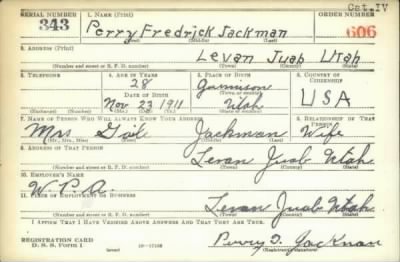 Cat. IV
SERIAL NUMBER 1. NAME (Print) ORDER NUMBER
343 Perry Fredrick Jackman 606
(First) (Middle) (Last)
2. ADDRESS (Print)
Levan Juab Utah
(Number and street or R. F. D. number) (Town) (County) (State)
3. TELEPHONE 4. AGE IN YEARS 5. PLACE OF BIRTH 6. COUNTRY OF CITIZENSHIP
28 Gunnison
DATE OF BIRTH (Town or county)
Nov 23 1911 Utah USA
(Exchange) (Number) (Mo.) (Day) (Yr.) (State or country)
7. NAME OF PERSON WHO WILL ALWAYS KNOW YOUR ADDRESS 8. RELATIONSHIP OF THAT PERSON
Mrs Jackman Wife
(Mr., Mrs., Miss) (First) (Middle) (Last)
9. ADDRESS OF THAT PERSON
Levan Juab Utah
(Number and street or R. F. D. number) (Town) (County) (State)
10. EMPLOYER'S NAME
W.P.A.
11. PLACE OF EMPLOYMENT OR BUSINESS
Levan Juab Utah
(Number and street or R. F. D. number) (Town) (County) (State)
I AFFIRM THAT I HAVE VERIFIED ABOVE ANSWERS AND THAT THEY ARE TRUE.
REGISTRATION CARD
D. S. S. Form 1 16-17105 Perry F. Jackman
(Registrant's signature)